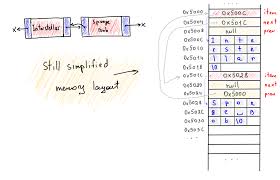 Interstellar
Sponge
Bob
Still simplified
memory layout
0x5000
0x5004
0x5008
0x500C
0x5010
0x5014
0x5018
0x501C
0x5020
0x5024
0x5028
0x502C
0x5030
0x500C
0x501C
null
I n t e
r s t e
l l a r
10
0x5028
null
0x5000
S p o n
g e ␣ B
o b 10
item
next
prev
item
next
prev